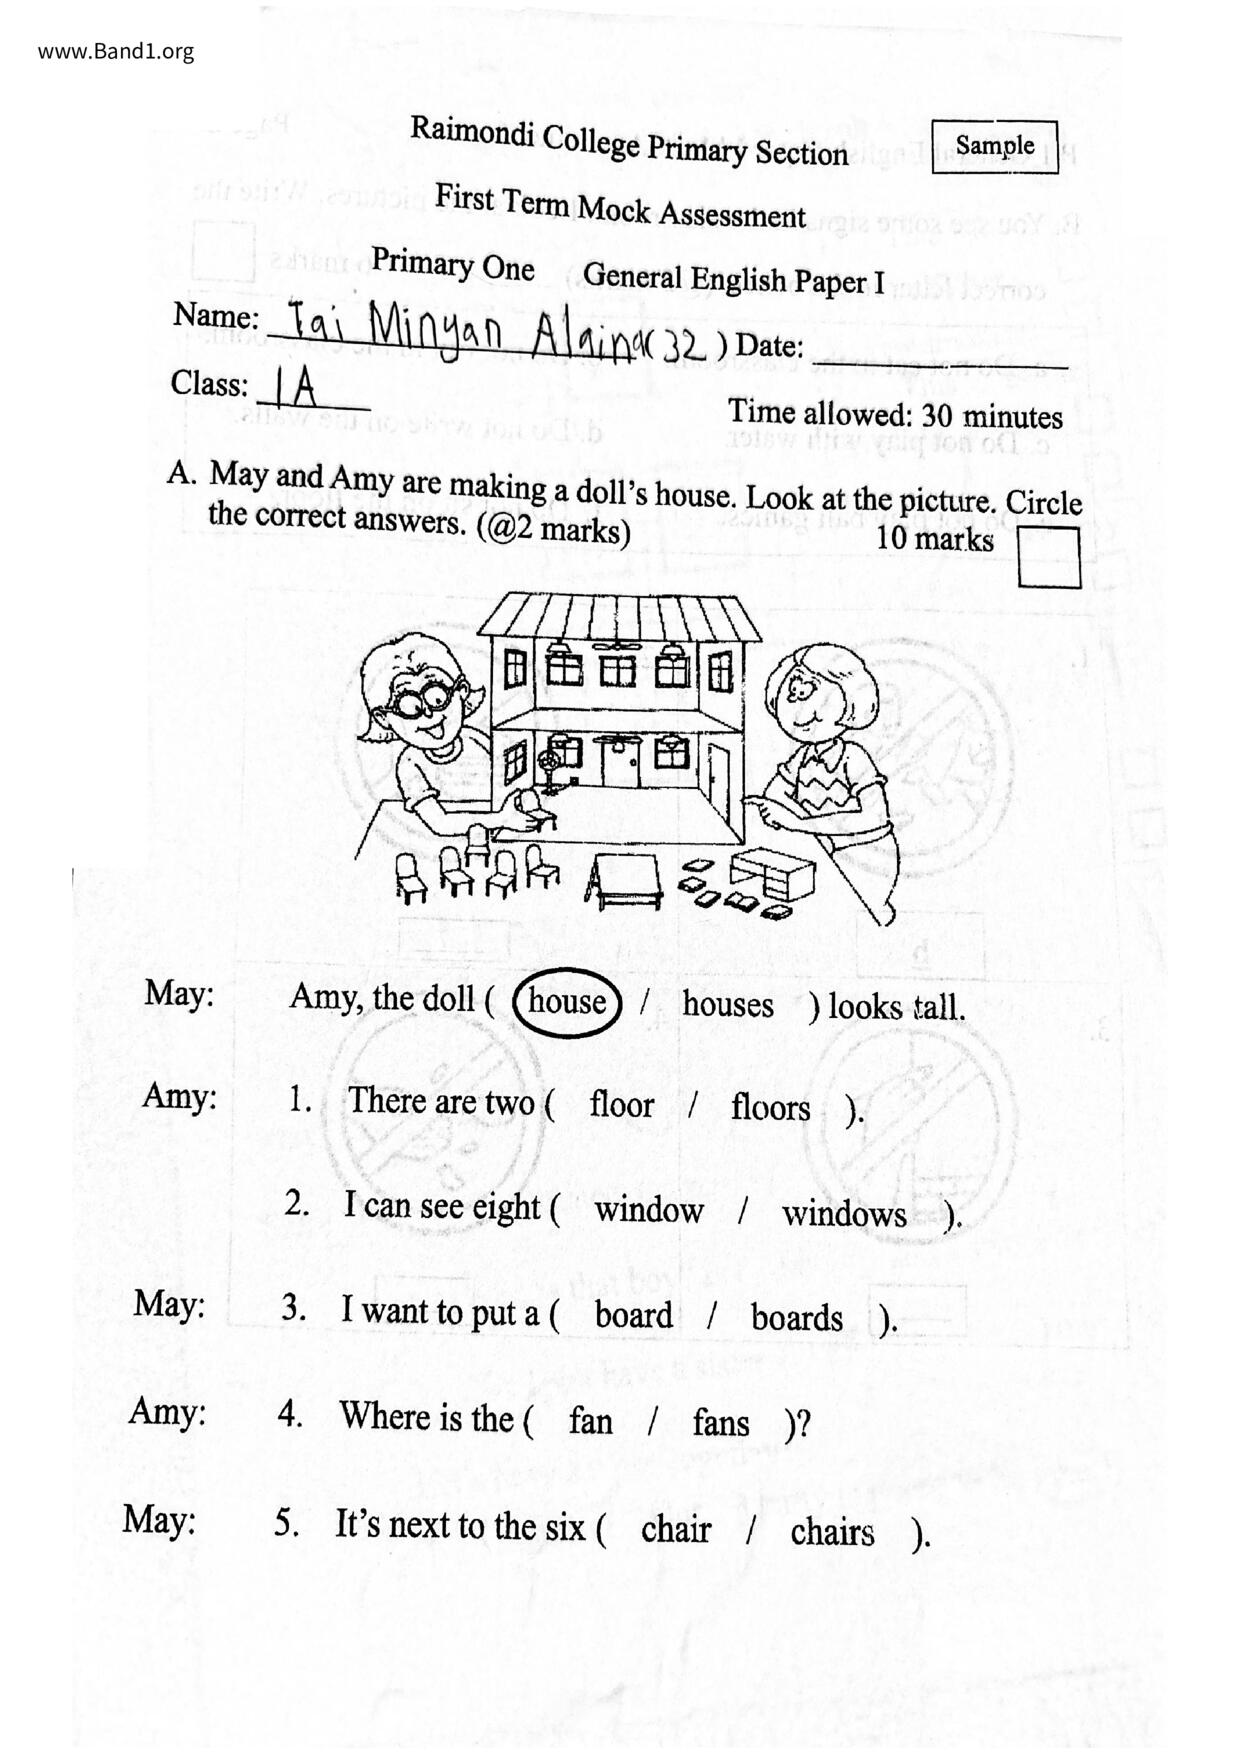 www.Band1.org
Raimondi College Primary Section
Sample
First Term Mock Assessment
Primary One General English Paper I
Name: Tai Minyan Alaina (32) Date:
Class: 1A
Time allowed: 30 minutes
A. May and Amy are making a doll's house. Look at the picture. Circle
the correct answers. (@2 marks) 10 marks
May: Amy, the doll ( house / houses ) looks tall.
Amy: 1. There are two ( floor / floors ).
2. I can see eight ( window / windows ).
May: 3. I want to put a ( board / boards ).
Amy: 4. Where is the ( fan / fans )?
May: 5. It's next to the six ( chair / chairs ).